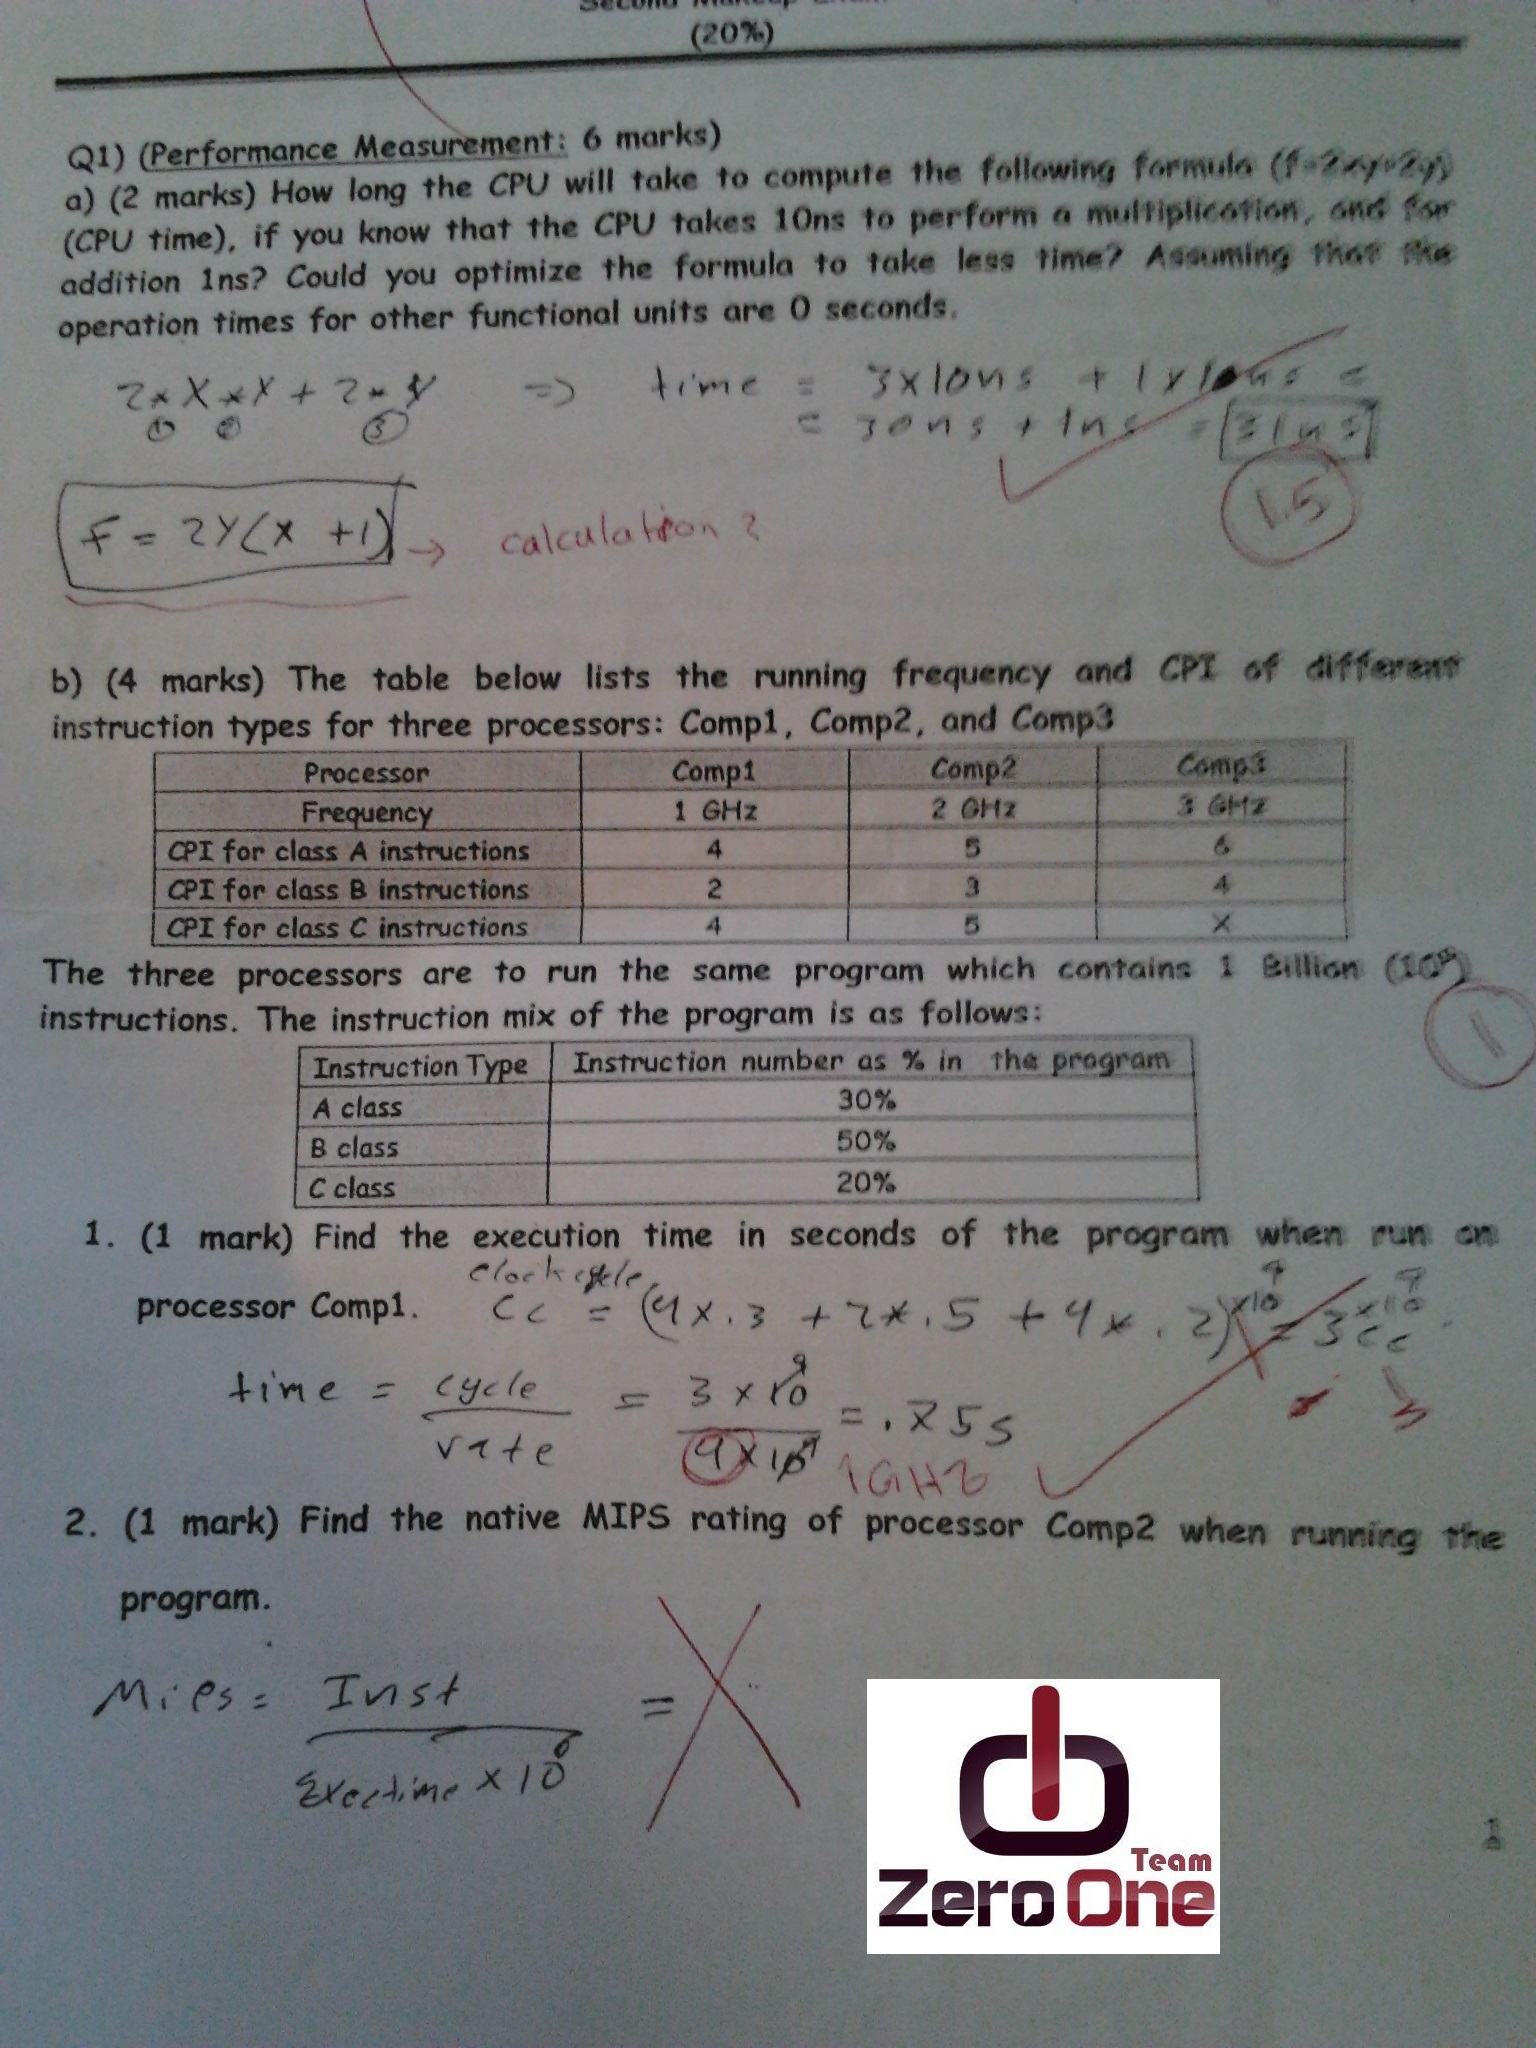 (20%)
Q1) (Performance Measurement: 6 marks)
a) (2 marks) How long the CPU will take to compute the following formula (f=2xy+2y)
(CPU time), if you know that the CPU takes 10ns to perform a multiplication, and for
addition 1ns? Could you optimize the formula to take less time? Assuming that the
operation times for other functional units are 0 seconds.
2*X*X+2*Y => time = 3x10ns + 1x1ns =
① ② ③ = 30ns + 1ns = 31ns
1.5
F = 2Y(X +1) → calculation?
b) (4 marks) The table below lists the running frequency and CPI of different
instruction types for three processors: Comp1, Comp2, and Comp3
Processor Comp1 Comp2 Comp3
Frequency 1 GHz 2 GHz 3 GHz
CPI for class A instructions 4 5 6
CPI for class B instructions 2 3 4
CPI for class C instructions 4 5 X
The three processors are to run the same program which contains 1 Billion (10⁹)
instructions. The instruction mix of the program is as follows:
1
Instruction Type Instruction number as % in the program
A class 30%
B class 50%
C class 20%
1. (1 mark) Find the execution time in seconds of the program when run on
clock cycle
processor Comp1. CC = (4x.3 + 2*.5 + 4x.2)x10⁹ = 3x10⁹ cc
time = cycle / rate = 3 x 10⁹ / 4 x 10⁹ = .75s
1GHz
2. (1 mark) Find the native MIPS rating of processor Comp2 when running the
program.
Mips = Inst / Exectime x 10⁶ =
1
Team
Zero One